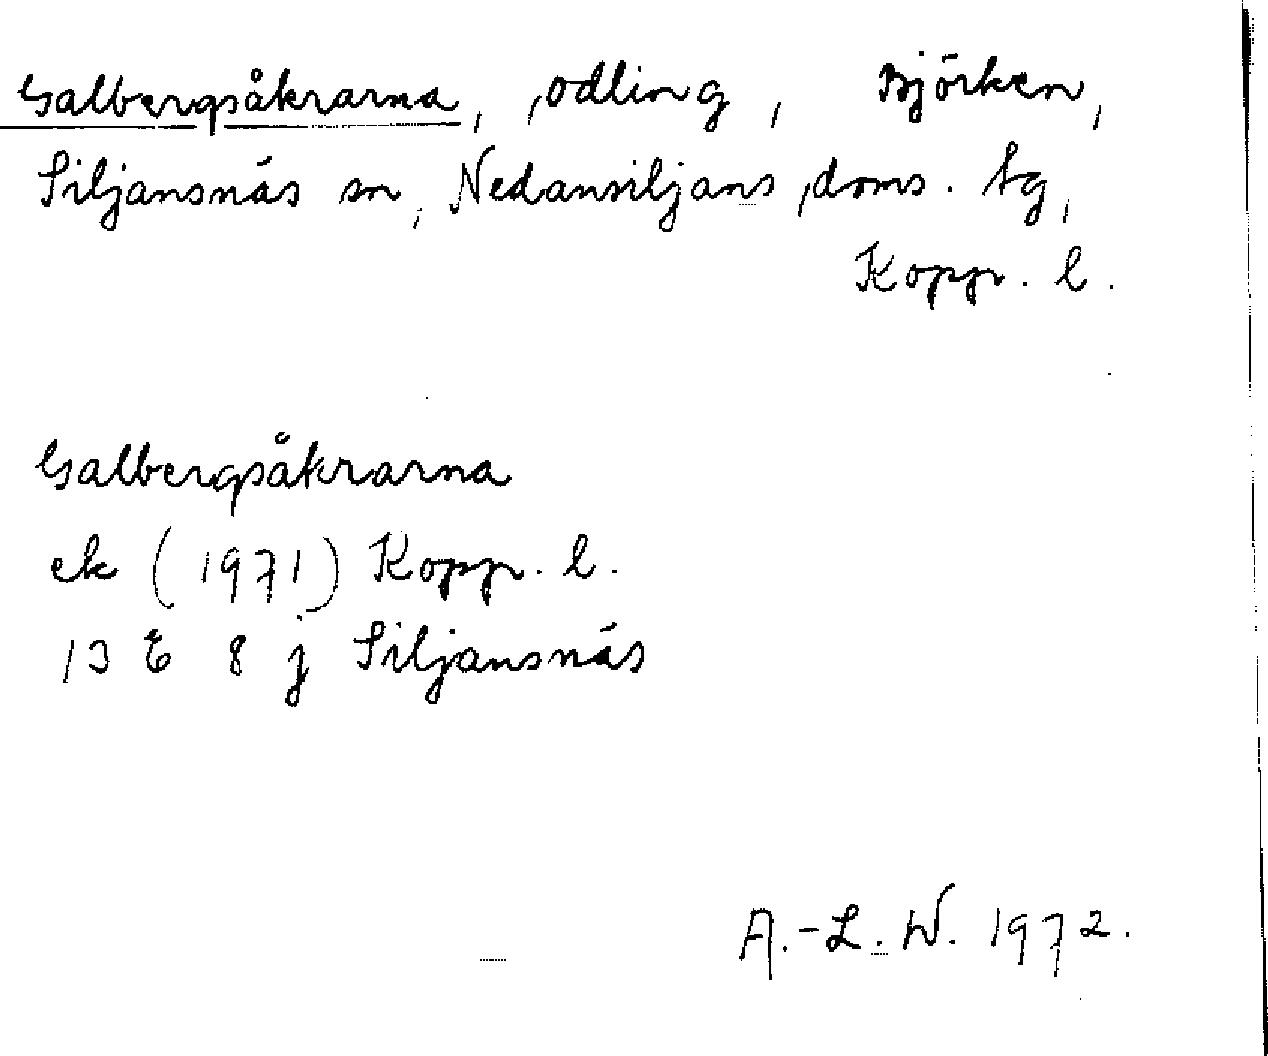 Galbergsåkrarna, odling, Björken,
Siljansnäs sn, Nedansiljans doms. tg,
Kopp. l.
Galbergsåkrarna
ek (1971) Kopp. l.
13 E 8 j Siljansnäs
A.-L. W. 1972.